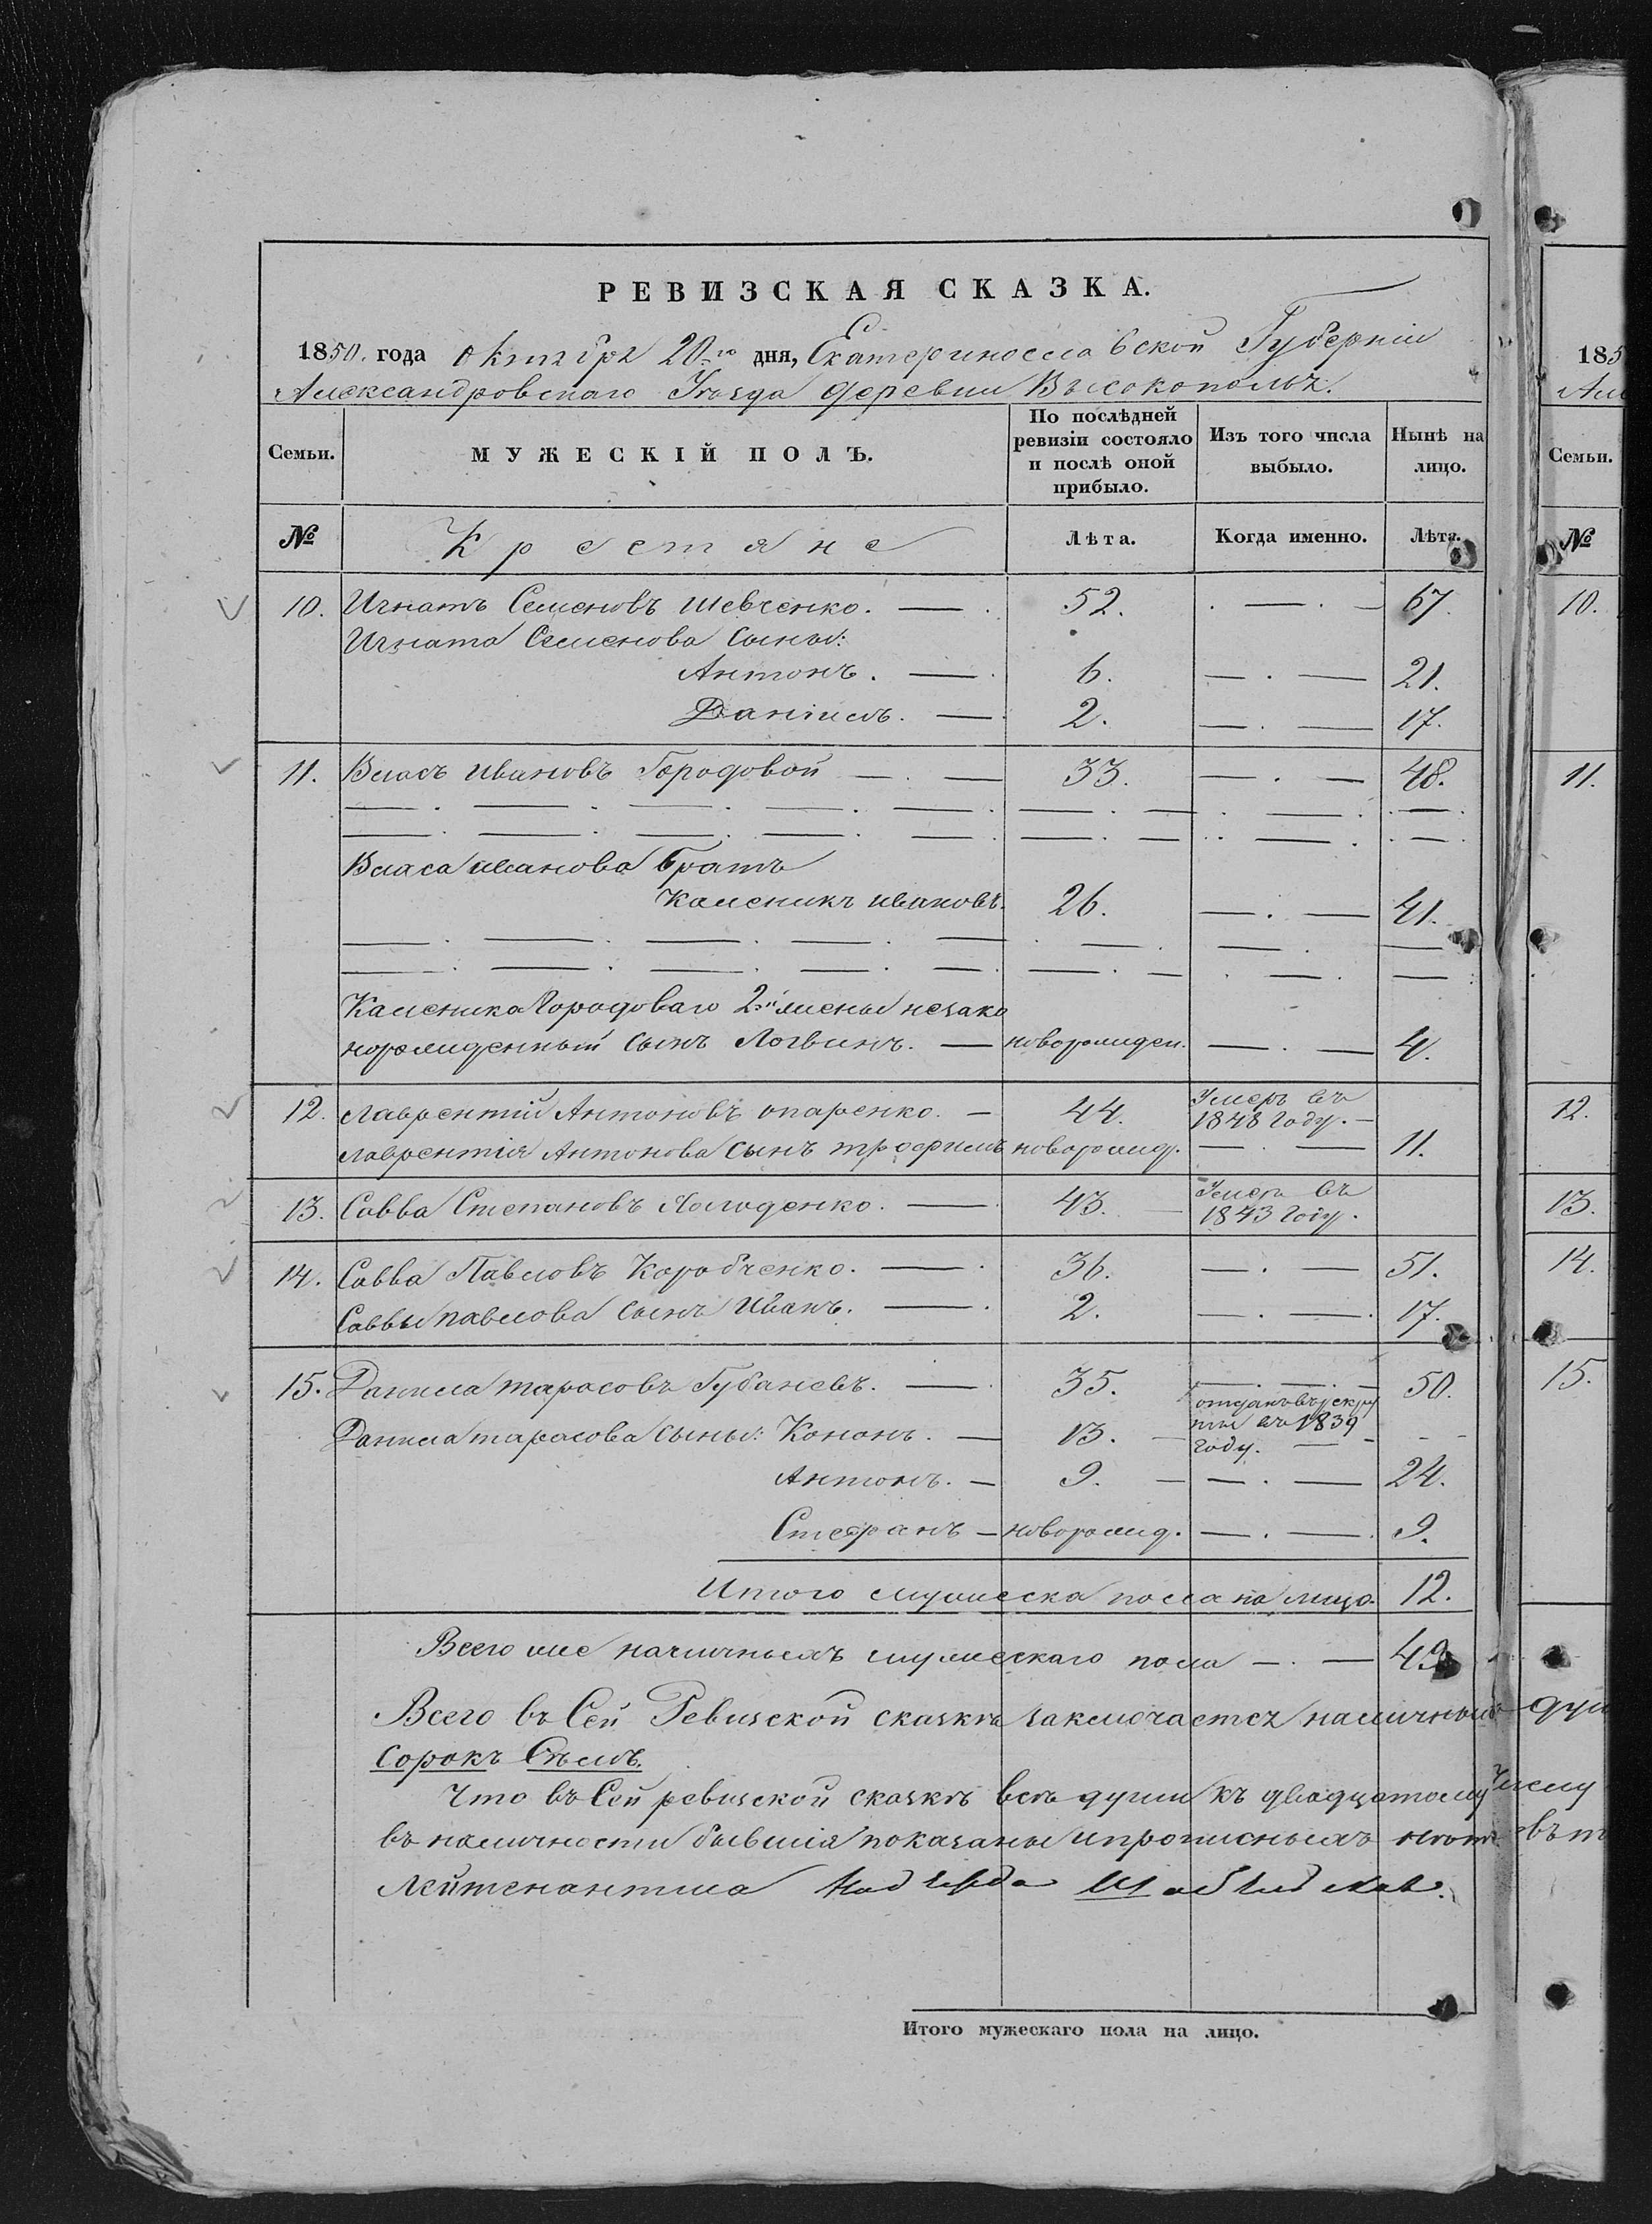 РЕВИЗСКАЯ СКАЗКА.
1850. года октября 20го дня, Екатеринославской Губерніи
Александровскаго Уѣзда деревни Высокополь.
Семьи. МУЖЕСКІЙ ПОЛЪ. По послѣдней ревизіи состояло и послѣ оной прибыло. Изъ того числа выбыло. Нынѣ на лицо.
№ Крестяне Лѣта. Когда именно. Лѣта.
10. Игнатъ Семеновъ Шевченко. — 52. — 67.
Игната Семенова Сыны:
Антонъ. — 6. — 21.
Даніилъ. — 2. — 17.
11. Власъ Ивановъ Городовой — 33. — 48.
Власа иванова братъ
Каленикъ ивановъ. 26. — 41.
Каленика Городоваго 2й жены незако
норожденный Сынъ Логвинъ. — новорожден. — 4.
12. лаврентій Антоновъ опаренко. — 44. Умеръ въ 1848 Году. —
лаврентія Антонова Сынъ трофимъ новорожд. — 11.
13. Савва Степановъ Холоденко. — 43. Умеръ въ 1843 Году.
14. Савва Павловъ Коробченко. — 36. — 51.
Саввы павлова Сынъ Иванъ. — 2. — 17.
15. Данила тарасовъ Губаневъ. — 35. — 50.
Данила тарасова Сыны: Кононъ. — 13. — отданъ въ рекруты въ 1839 году. —
Антонъ. — 9. — 24.
Стефанъ — новорожд. — 9.
Итого мужеска пола на лицо. 12.
Всего же наличныхъ мужескаго пола —
Всего въ Сей Ревизской сказкѣ заключается наличныхъ душ
сорокъ Сѣмъ.
Что въ Сей ревизской сказкѣ всѣ души къ двадцатому числу
въ наличности бывшія показаны и прописныхъ нѣтъ. въ т
Лейтенантша Надежда
Итого мужескаго пола на лицо.
185
Але
Семьи.
№
10.
11.
12.
13.
14.
15.